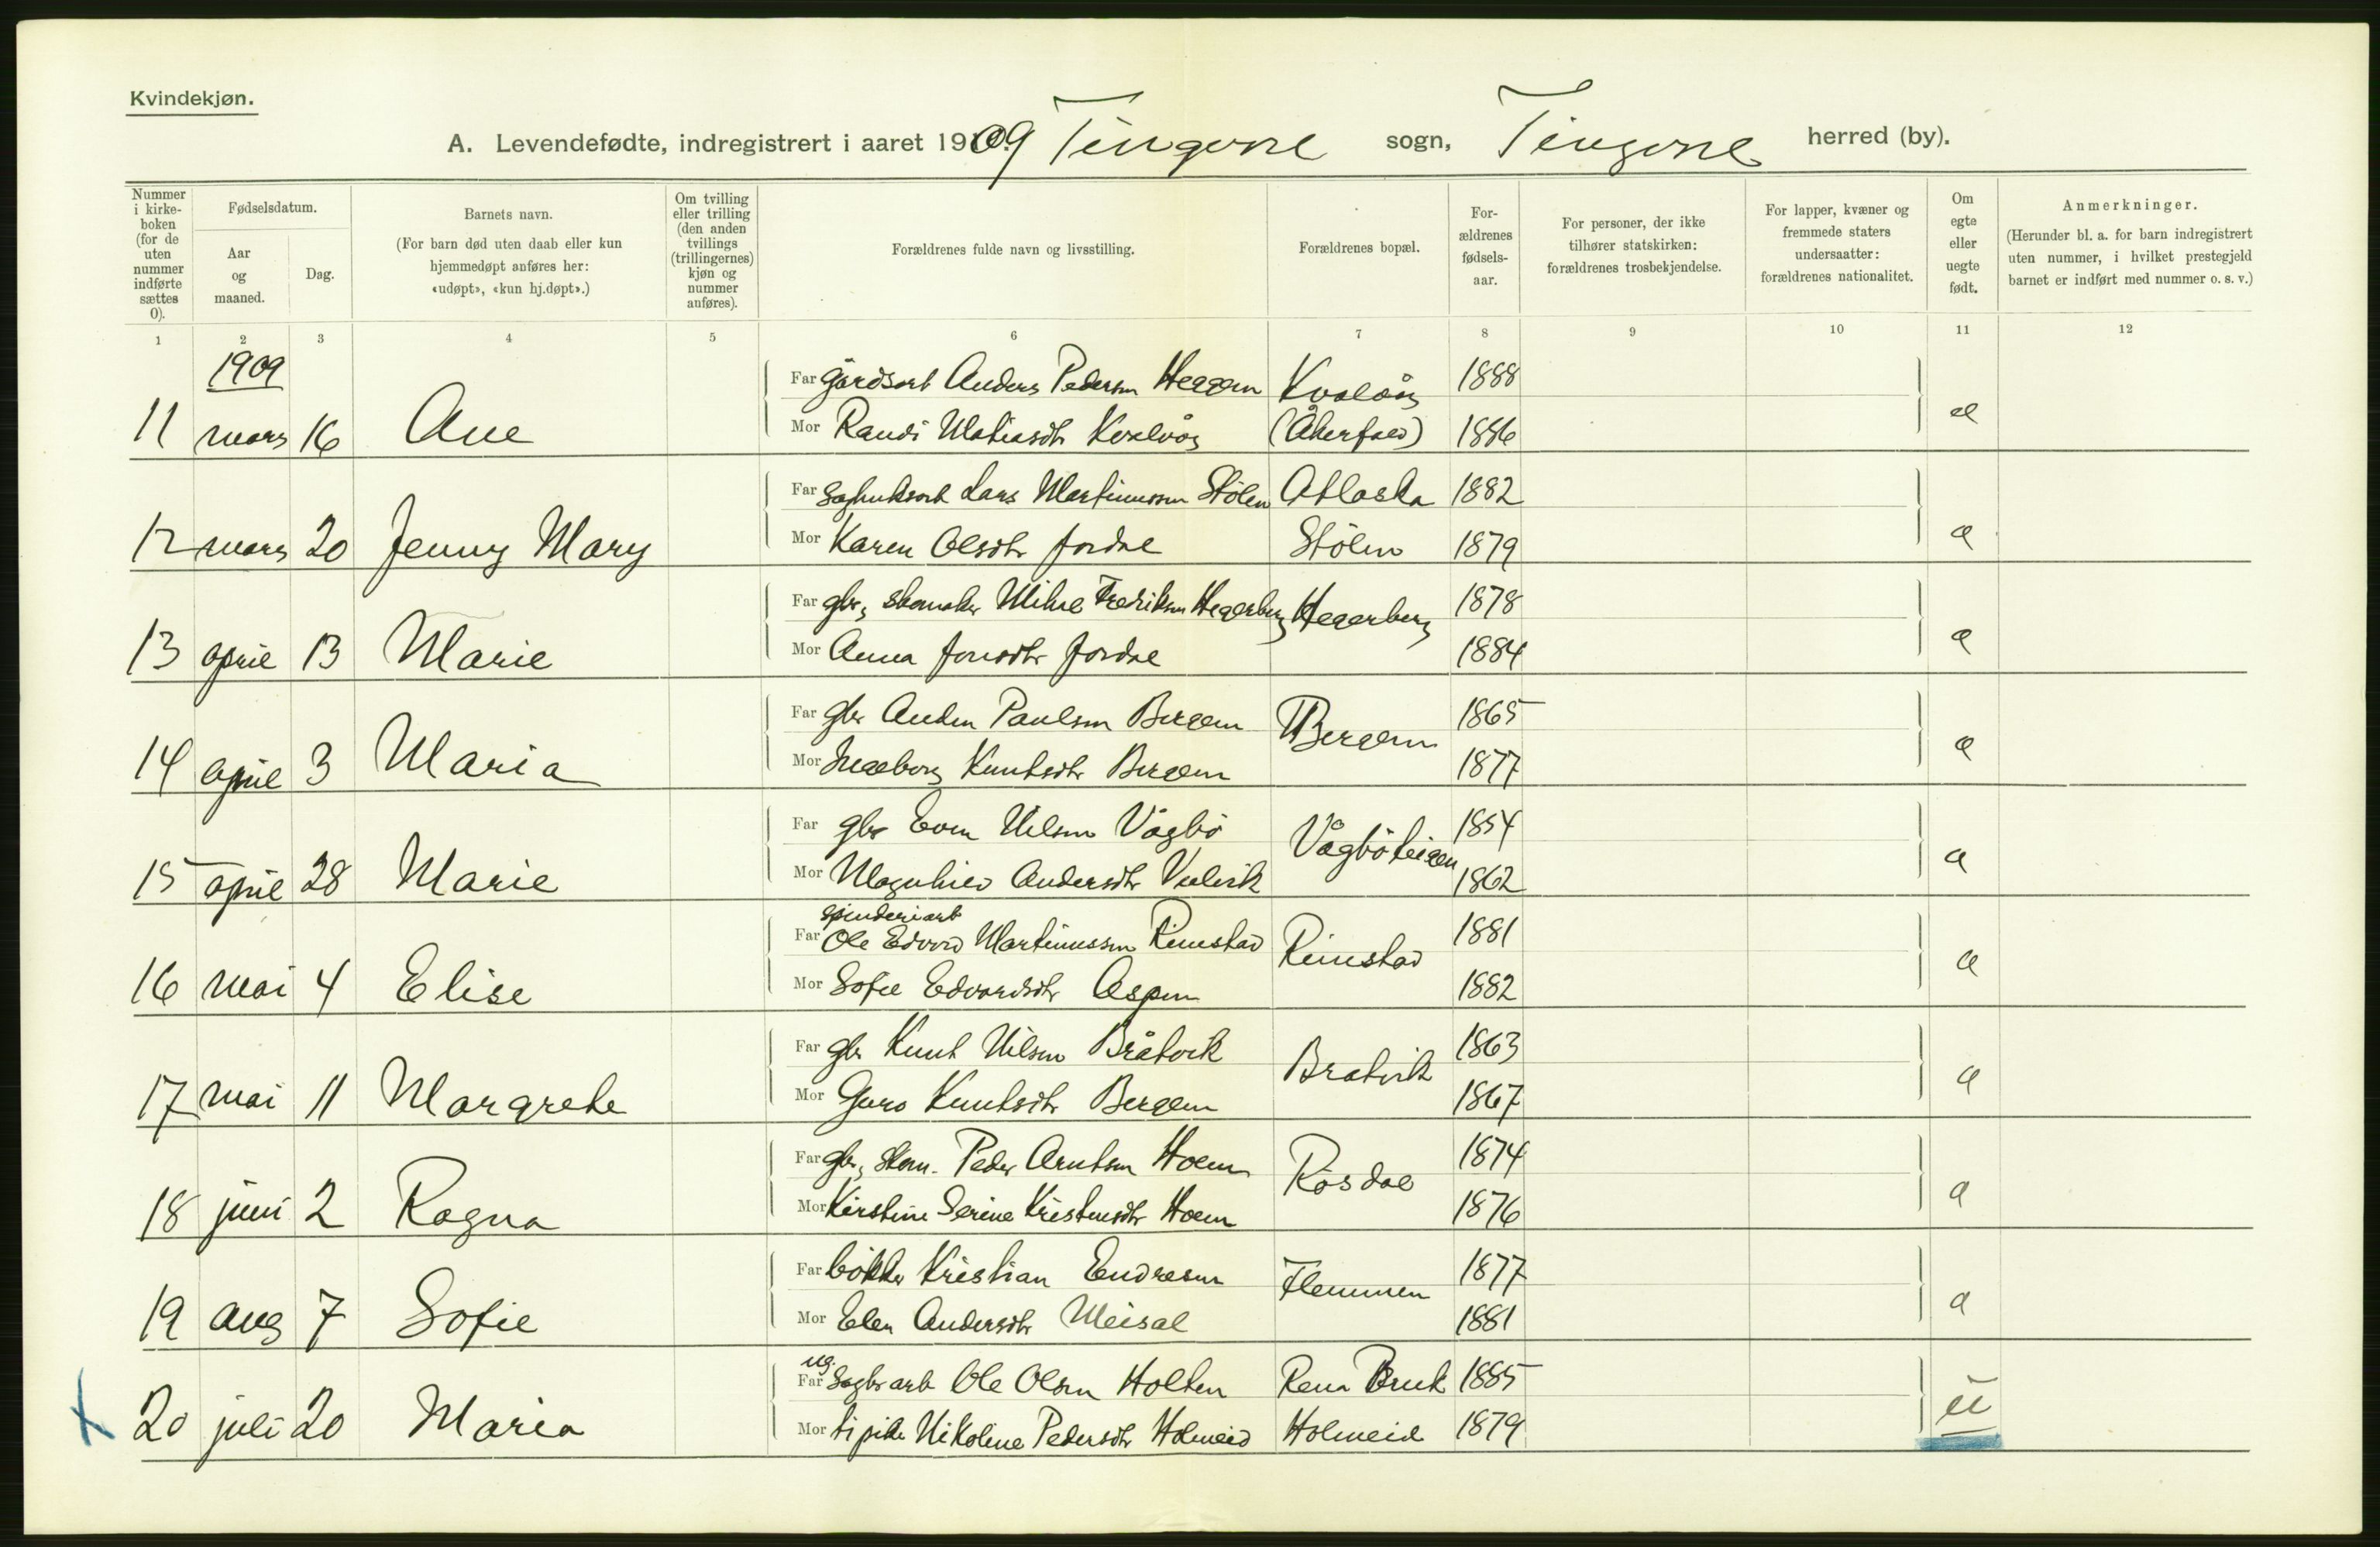 Kvindekjøn.
A. Levendefødte, indregistrert i aaret 1909 Tingvoll sogn, Tingvoll herred (by).
Nummer i kirke-boken (for de uten nummer indførte sættes 0).
Fødselsdatum.
Aar og maaned.
Dag.
Barnets navn.
(For barn død uten daab eller kun hjemmedøpt anføres her: «udøpt», «kun hj.døpt».)
Om tvilling eller trilling (den anden tvillings (trillingernes) kjøn og nummer anføres).
Forældrenes fulde navn og livsstilling.
Forældrenes bopæl.
For-ældrenes fødsels-aar.
For personer, der ikke tilhører statskirken: forældrenes trosbekjendelse.
For lapper, kvæner og fremmede staters undersaatter: forældrenes nationalitet.
Om egte eller uegte født.
Anmerkninger.
(Herunder bl. a. for barn indregistrert uten nummer, i hvilket prestegjeld barnet er indført med nummer o. s. v.)
1 2 3 4 5 6 7 8 9 10 11 12
1909
Far gårdsarb Anders Pedersen Heggem Kvalvåg 1888
11 mars 16 Ane Mor Randi Matiasdtr Kvalvåg 1886 e
Far Lars Martinussen Stölen Atlaska 1882
12 mars 20 Jenny Mary Mor Karen Olsdtr Jordal Stölen 1879 e
Far gbr, skomaker Mikal Fredriksen Hegerberg Hegerberg 1878
13 april 13 Marie Mor Anna Jonsdtr Jordal 1884 e
Far gbr Anders Paulsen Bergem Bergem 1865
14 april 3 Maria Mor Ingeborg Knutsdtr Bergem 1877 e
Far gbr Even Nilsen Vågbö Vågböteigen 1854
15 april 28 Marie Mor Magnhild Andersdtr 1862 e
spinderiarb
Far Ole Edvard Martinussen Rimstad Rimstad 1881
16 mai 4 Elise Mor Sofie Edvardsdtr Aspen 1882 e
Far gbr Knut Nilsen Bråtvik Bratvik 1863
17 mai 11 Margrete Mor Guro Knutsdtr Bergem 1867 e
Far gbr, skom. Peder Arntsen Hoem Rosdal 1874
18 juni 2 Ragna Mor Kirstine Serine Kristensdtr Hoem 1876 e
Far bökker Kristian Endresen Flemmen 1877
19 aug 7 Sofie Mor Elen Andersdtr Meisal 1881 e
ug.
Far Sagbr arb Ole Olsen Holten Rena Bruk 1885
20 juli 20 Maria Mor Nikoline Pedersdtr Holmeid Holmeid 1879 u